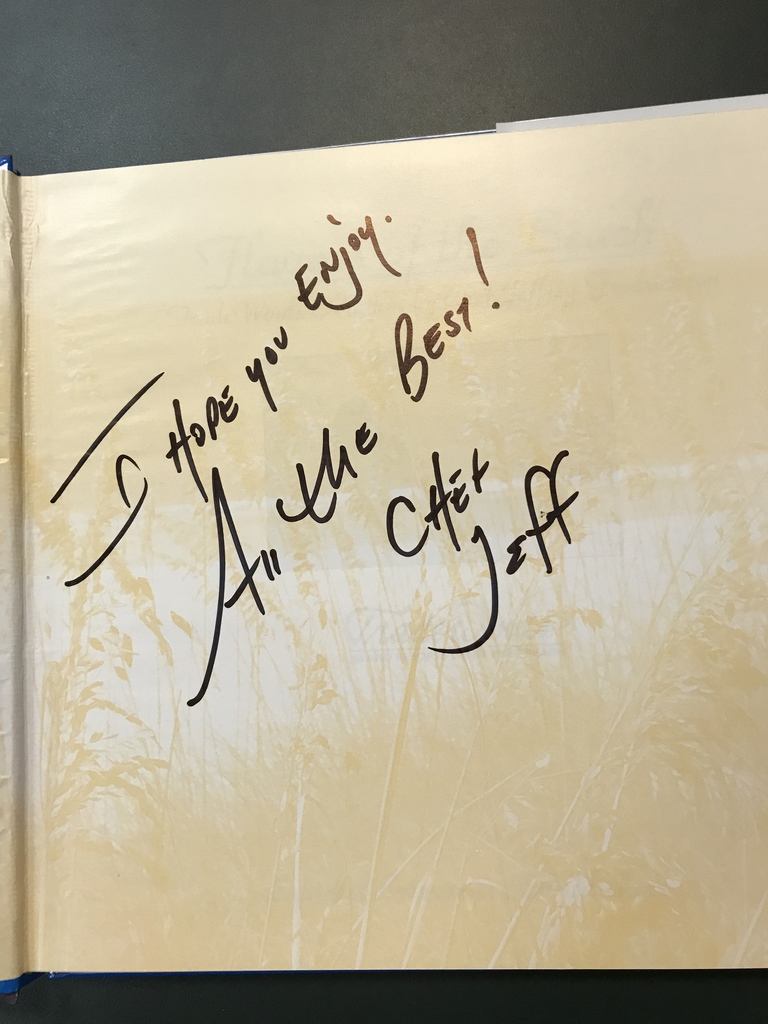 I HOPE you ENJOY.
All the BEST!
CHEF
JEFF